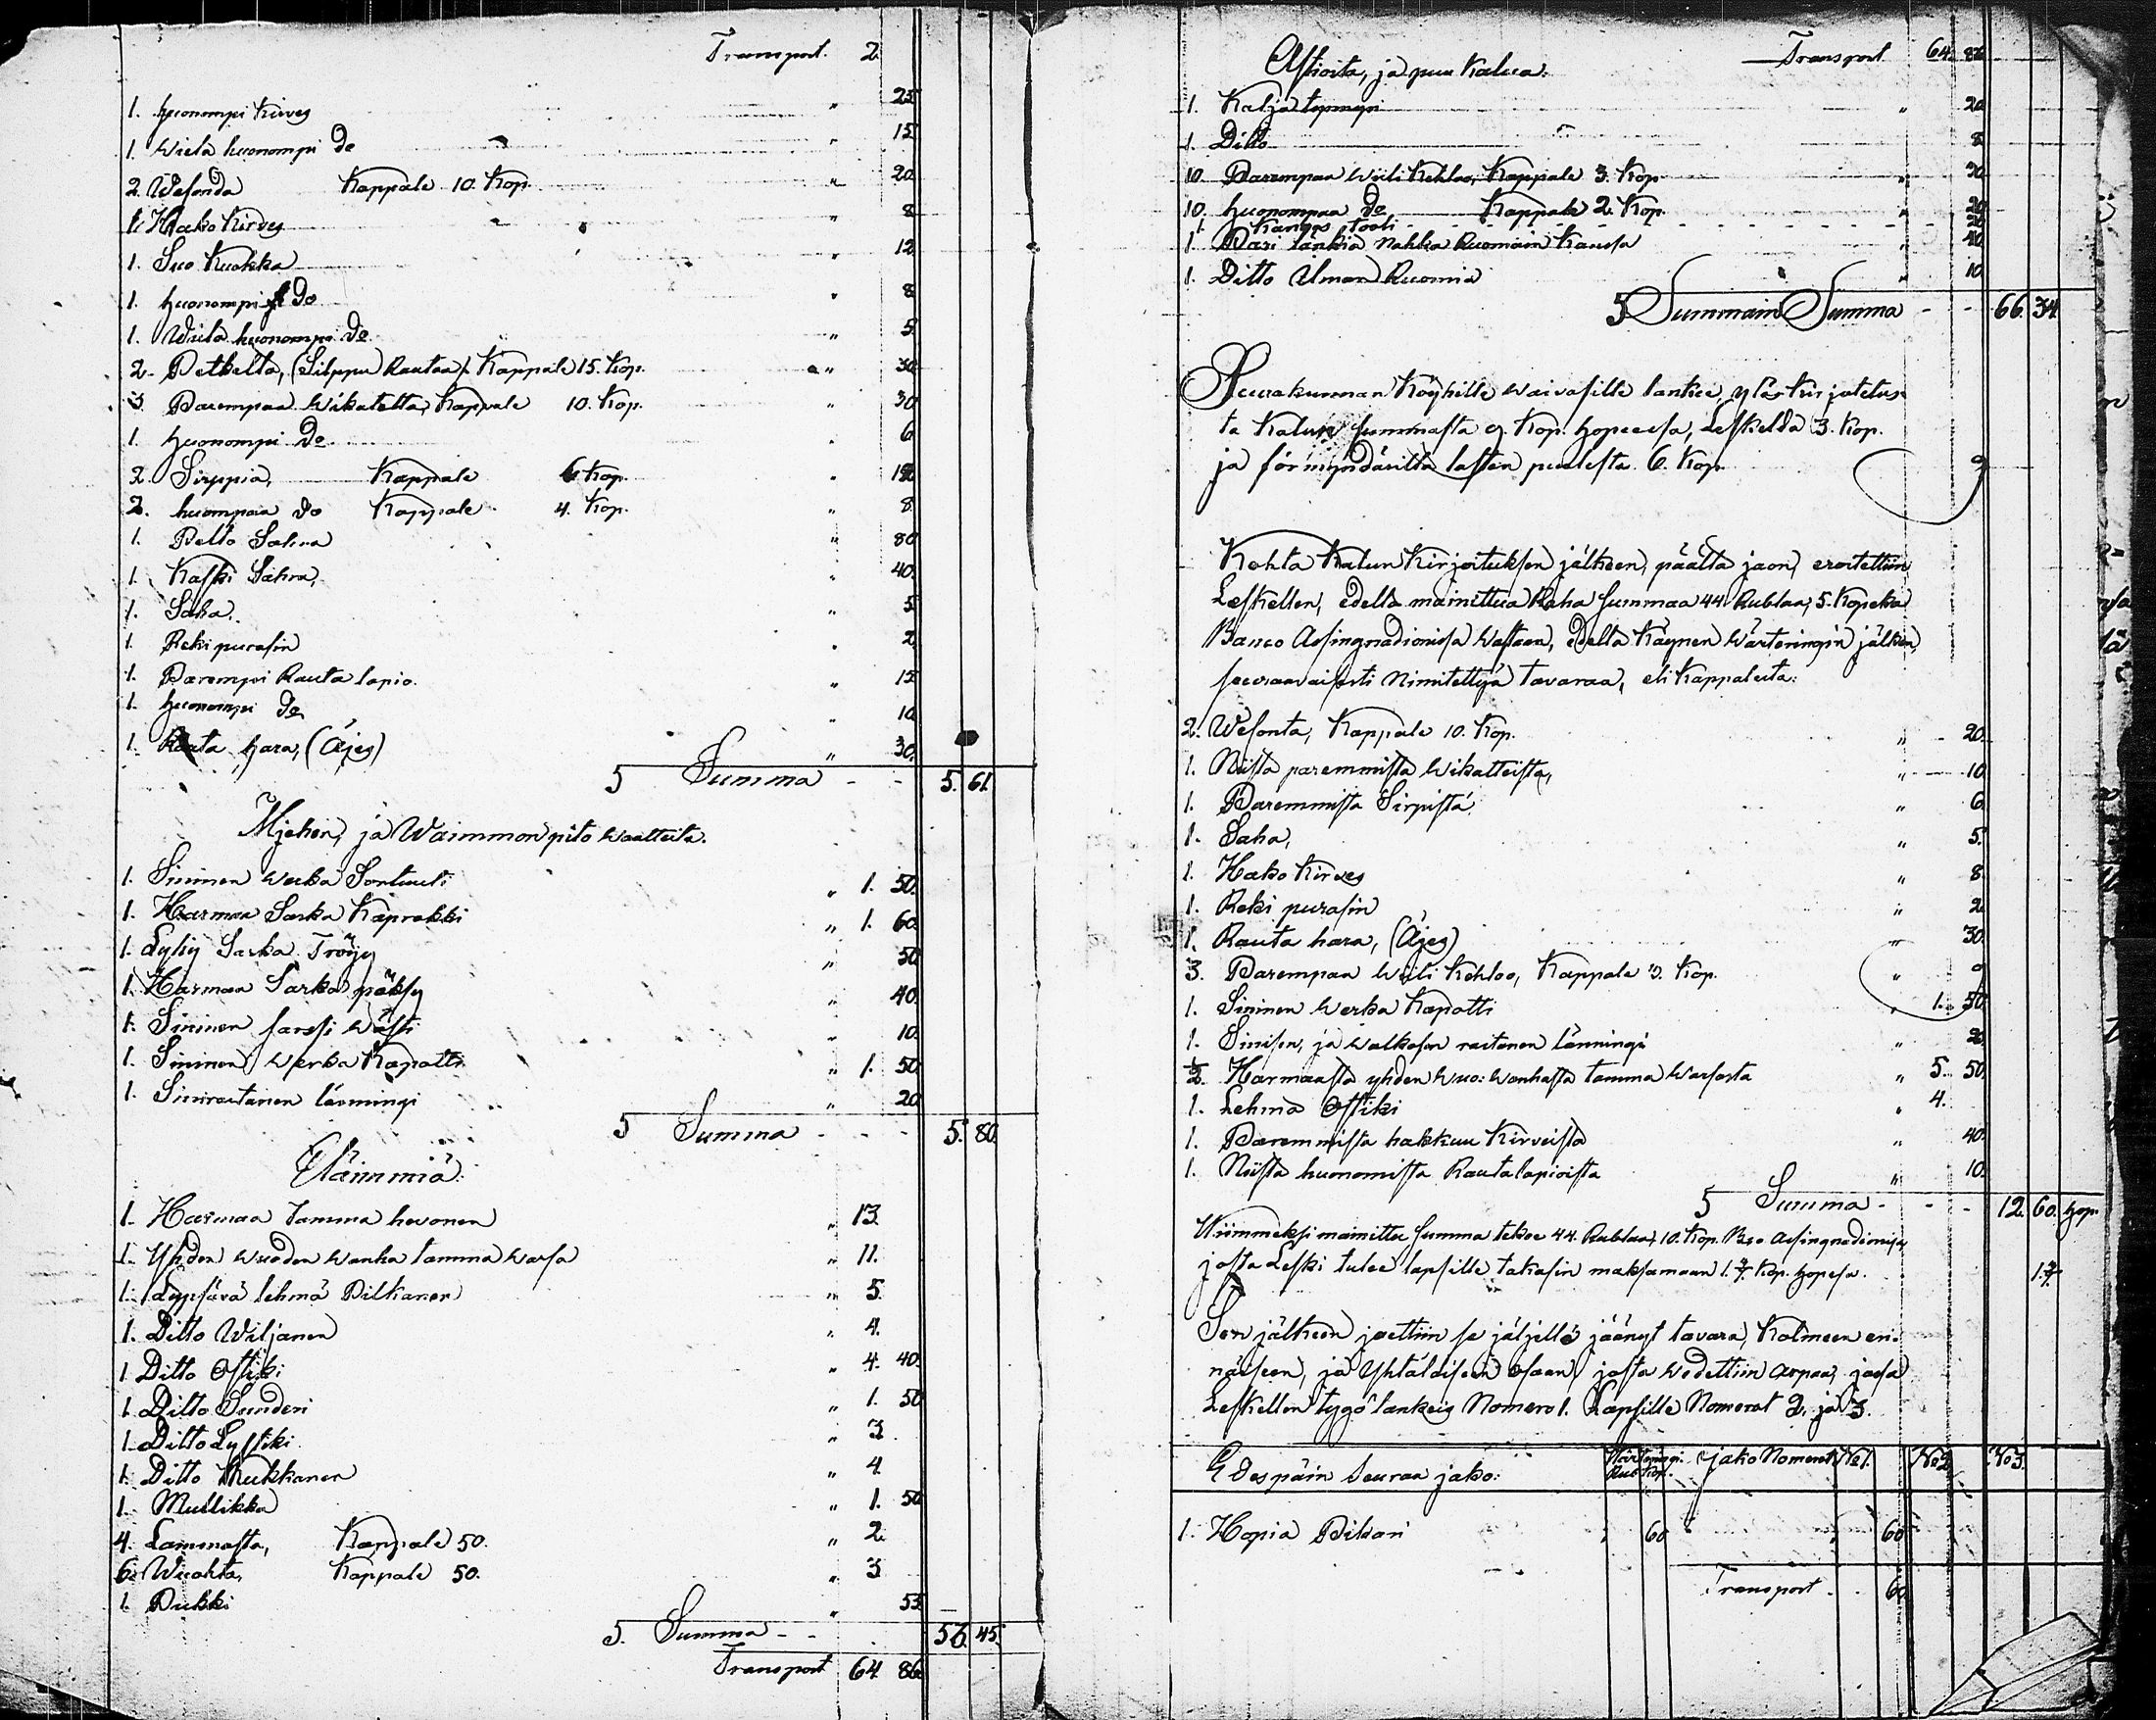 Transport. 2
1. huonompi Kirves „ 25
1. Wielä huonompi do „ 15
2. Wesonda Kappale 10. Kop. „ 20
1. Hako Kirves „ 8
1. Suo Kuokka „ 12
1. huonompi do „ 8
1. Wielä huonompi do „ 5
2. Petkelta, (Silppu Rautaa) Kappale 15. Kop. „ 30
3. Parempaa Wikatetta, Kappale 10. Kop. „ 30
1. huonompi do „ 6
2. Sirppia, Kappale 6 Kop. „ 12
2. huompaa do Kappale 4. Kop. „ 8
1. Pelto Sahra „ 80
1. Kaski Sahra, „ 40
1. Saha, „ 5
1. Reki purasin „ 2
1. Parempi Rauta lapio. „ 15
1. huonompi do „ 10
1. Rauta hara, (Äjes) „ 30.
5 Summa - - 5. 61.
Mjehen, ja Waimmon pito waatteita.
1. Sininen Werka Sortuuti „ 1. 50.
1. Harmaa Sarka Kaprokki „ 1. 60.
1. Lyhy Sarka Tröijy „ 50
1. Harmaa Sarka pöksy „ 40.
1. Sininen sarssi Wästi „ 10.
1. Sininen Werka Kapotti „ 1. 50
1. Siniraitanen länningi „ 20
5 Summa - - - 5. 80.
Eläimmiä.
1. Harmaa tamma hevonen „ 13.
1. Yhden wuoden wanha tamma warsa „ 11.
1. Lypsävä lehmä Pilkanen „ 5.
1. Ditto Wiljanen „ 4.
1. Ditto Ostiki „ 4. 40.
1. Ditto Sunderi „ 1. 50
1. Ditto Lystiki „ 3
1. Ditto Kukkanen „ 4
1. Mullikka „ 1. 50
4. Lammasta, Kappale 50. „ 2.
6. Wuohta, Kappale 50. „ 3
1. Pukki „ 55
5. Summa - - 56. 45.
Transport 64. 86.
Astioita, ja puu Kalua. Transport 64. 86
1. Kalja tynnyri „ 20
1. Ditto 8
10. Parempaa Wiili Kehloo, Kappale 3. Kop. „ 30
10. huonompaa do Kappale 2. Kop. „ 20
1. Kangas tooli 20
1. Pari länkiä Nahka Ruomain Kanssa „ 40
1. Ditto Ulman Ruomia „ 10
5 Summain Summa - - 66. 34
Seurakunnan Köyhille waivasille lankee, ylös kirjotetus-
ta Kalun summasta 9. Kop. hopeessa, Leskeldä 3. Kop.
ja förmyndäriltä lasten puolesta 6. Kop. 9
Kohta Kalun Kirjoituksen jälkeen, päältä jaon, eroitettiin
Leskellen, edellä mainittua Raha summaa 44. Rublaa, 5. Kopeka
Banco Assingnadionissa Wastaan, edellä käynen wärteringin jälken,
seuraavaisesti Nimitettyä tavaraa, eli Kappaleita:
2. Wesonta, Kappale 10. Kop. „ 20.
1. Niistä paremmista Wikatteista, „ 10
1. Paremmista Sirpistä „ 6
1. Saha, „ 5.
1. Hako Kirves „ 8
1. Reki purasin „ 2
1. Rauta hara, (Äjes) „ 30.
3. Parempaa Wiili Kehloo, Kappale 3. Kop. „ 9
1. Sininen Werka Kapotti „ 1. 50
1. Sinisen, ja walkosen raitanen länningi „ 20
½. Harmaasta yhden wuo: wanhasta tamma Warsasta „ 5. 50.
1. Lehmä Ostiki „ 4.
1. Paremmista hakkuu Kirveistä „ 40.
1. Niistä huonomista Rautalapioista „ 10.
5 Summa - - - 12. 60. hop.
Wiimmeksi mainittu summa tekee 44. Rublaa, 10. Kop. Bco Assingnadionissa
josta Leski tulee lapsille takasin maksamaan 1. 3/7. Kop. hopesa. 1. 3/7.
Sen jälkeen jaettiin se jäljellä jäänyt tavara, Kolmeen eri-
näiseen, ja Yhtäläiseen osaan, josta wedettiin arpaa, jossa
Leskellen tygö lankeis Nomero 1. Lapsille Nomerot 2. ja 3.
Edespäin Seuraa jako: Wärteringi Rub Kop. Jako Nomerot No 1. No 2 No 3.
1. Hopia Pikari „ 60 60
Transport 60